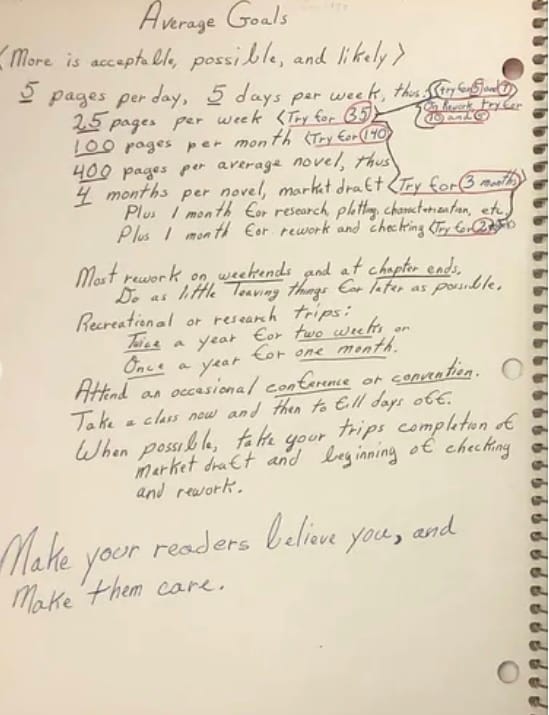 Average Goals
<More is acceptable, possible, and likely>
5 pages per day, 5 days per week, thus: <try for 5 and 7>
On Rework try for
10 and 5
25 pages per week <Try for 35>
100 pages per month <Try for 140>
400 pages per average novel, thus
4 months per novel, market draft <Try for 3 months>
Plus 1 month for research, plotting, characterization, etc.
Plus 1 month for rework and checking <Try for 2
Most rework on weekends and at chapter ends.
Do as little leaving things for later as possible.
Recreational or research trips:
Twice a year for two weeks or
Once a year for one month.
Attend an occasional conference or convention.
Take a class now and then to fill days off.
When possible, take your trips completion of
market draft and beginning of checking
and rework.
Make your readers believe you, and
Make them care.